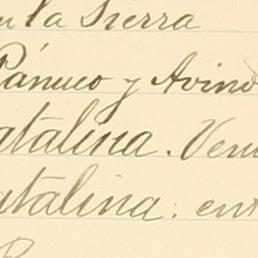 en la Sierra
Pánuco y Avino
atalina. Ven
atalina: ent